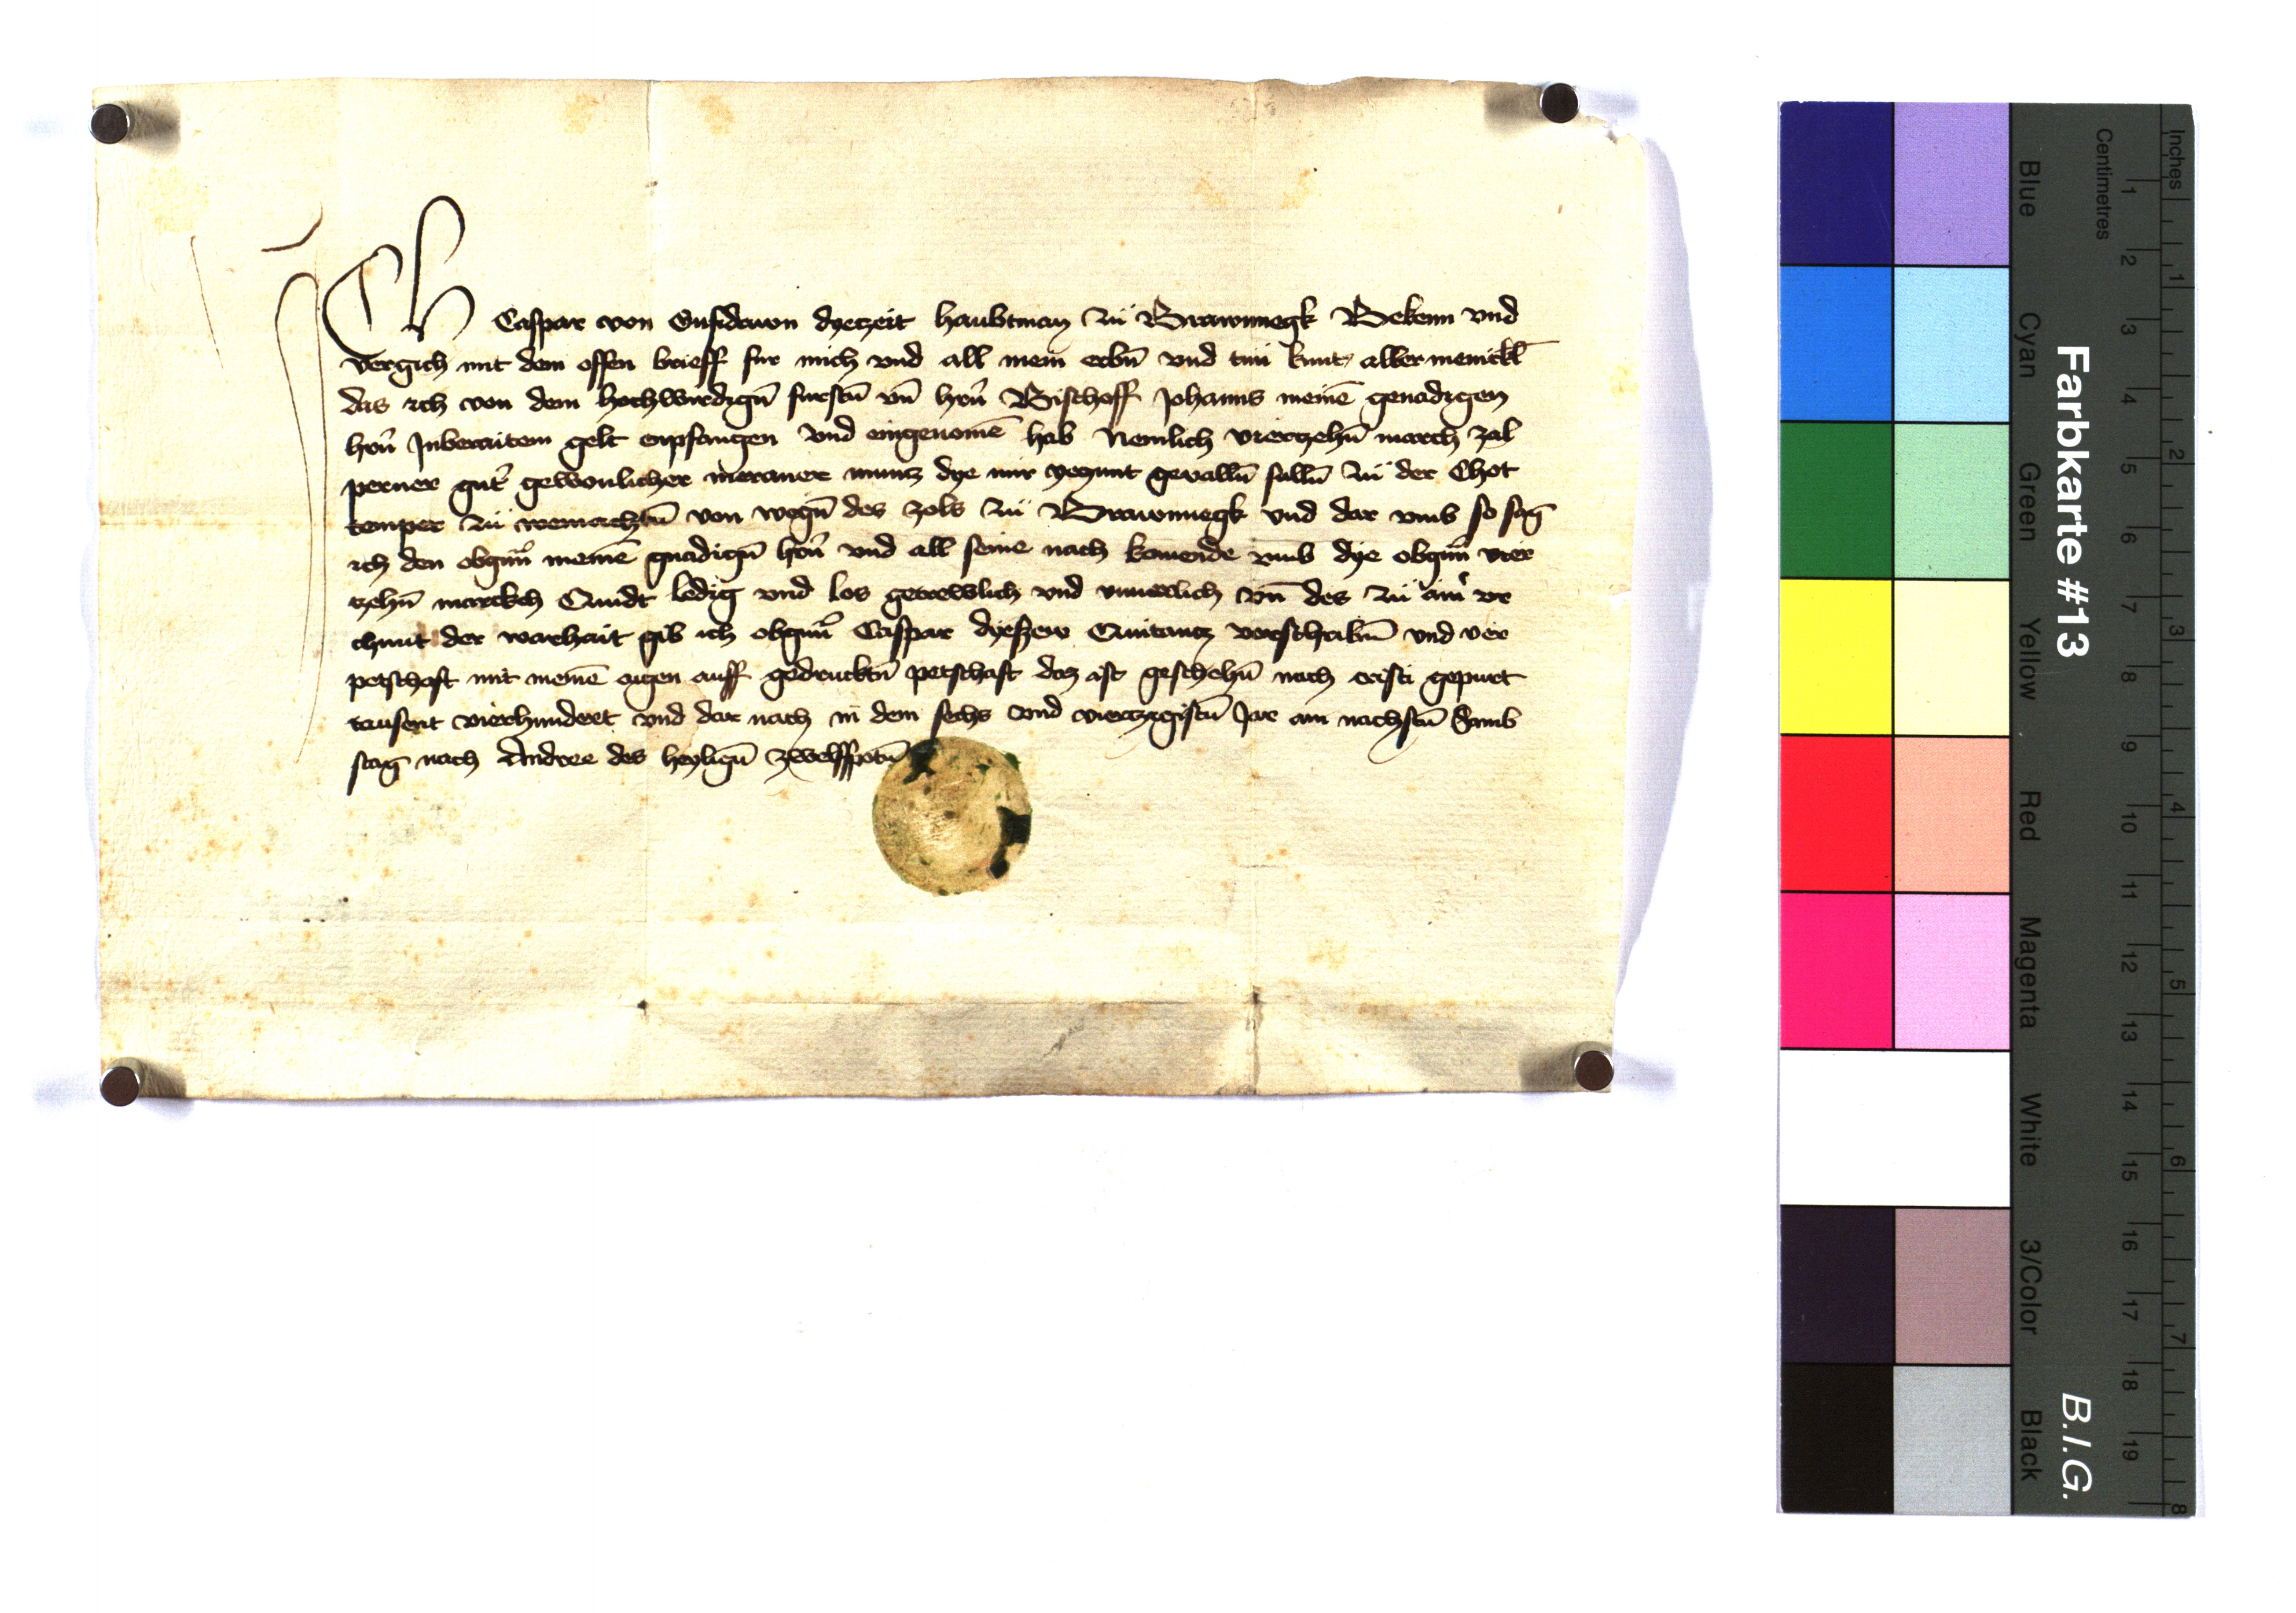 Ich Caspar von Gufidawn dyezeit haubtman zü Brawnnegk Bekenn vnd
vergich mit dem offen brieff fur mich vnd all mein erbn̄ vnd tün kunt allermenickl̄
das ich von dem hochwirdign̄ furstn̄ vn̄ hern̄ Bischoff Johanns meinē genadigen
hern̄ Jnberaitem gelt enpfangen vnd eingenomē hab Nemlich viertzehn̄ march zal
perner gut̉ gewonlicher meraner muntz dye mir yezunt gevalln̄ sulln̄ zü der Chot
temper zü weinachtn̄ von wegn̄ des zols zü Brawnnegk vnd dar vmb so sag
ich den obgn̄n meinē gnadign̄ hern̄ vnd all seine nach komende vmb dye obgn̄n vier
tzehn̄ marckch Quidt ledig vnd los getrewlich vnd vn̄ des zü ain̉ vr
chunt der warhait gib ich obgn̄n Caspar dyeszew Quitantz verschribn̄ vnd ver
petschaft mit meinē aigen auff gedrucktn̄ petschaft daz ist geschehn̄ nach cristi gepurt
tausent vierhundert vnd dar nach in dem sechs vnd viertzigistn̄ Jar am nachstn̄ Samb
stag nach Andree des heylign̄ zwelffpotn̄
Farbkarte #13
B.I.G.
Blue
Cyan
Green
Yellow
Red
Magenta
White
3/Color
Black
Centimetres
1 2 3 4 5 6 7 8 9 10 11 12 13 14 15 16 17 18 19
Inches
1 2 3 4 5 6 7 8